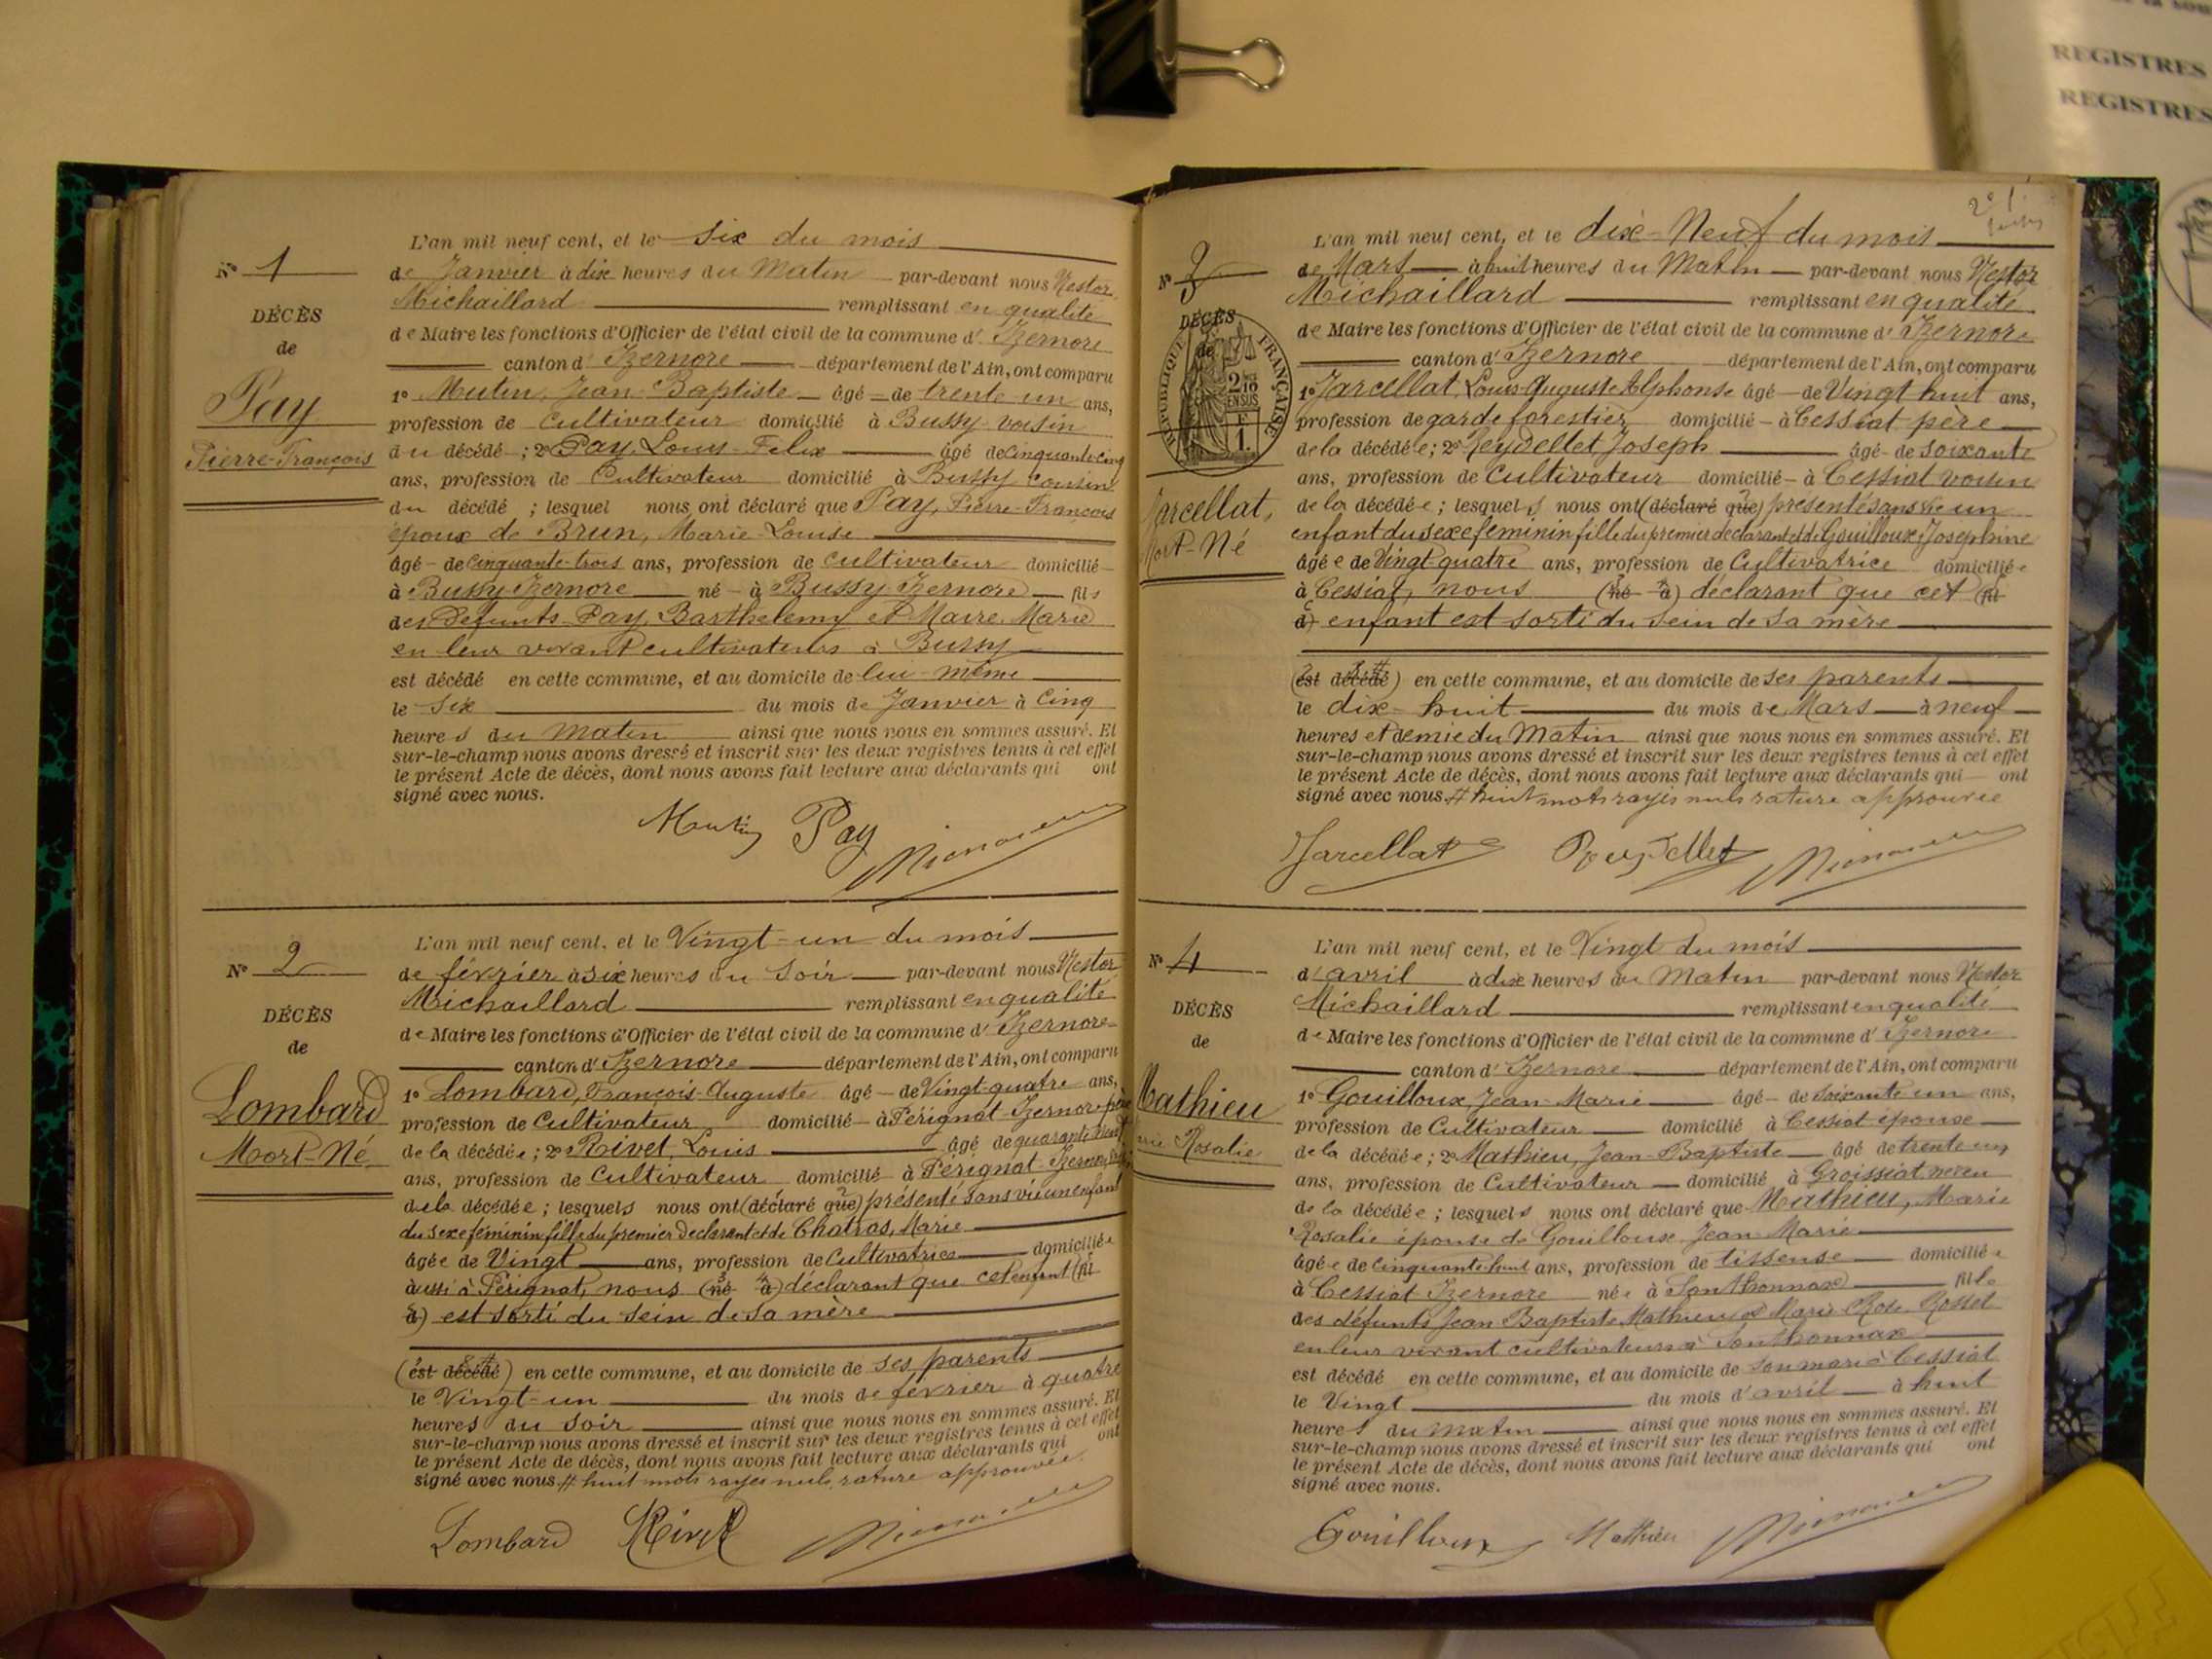 REGISTRES
REGISTRES
N° 1
DÉCÈS
de
Pay
Pierre-François
L'an mil neuf cent, et le six du mois
de Janvier à dix heures du Matin par-devant nous Nestor
Michaillard remplissant en qualité
de Maire les fonctions d'Officier de l'état civil de la commune d' Izernore
canton d' Izernore département de l'Ain, ont comparu
1° Mutin, Jean-Baptiste âgé de trente un ans,
profession de Cultivateur domicilié à Bussy voisin
du décédé ; 2° Pay, Louis-Felix âgé de cinquante-cinq
ans, profession de Cultivateur domicilié à Bussy cousin
du décédé ; lesquel nous ont déclaré que Pay, Pierre-François
époux de Brun, Marie-Louise
âgé de cinquante-trois ans, profession de cultivateur domicilié
à Bussy-Izernore né à Bussy-Izernore fils
des défunts Pay, Barthelemy et Maire, Marie
en leur vivant cultivateurs à Bussy
est décédé en cette commune, et au domicile de lui-même
le six du mois de Janvier à cinq
heures du Matin ainsi que nous nous en sommes assuré. Et
sur-le-champ nous avons dressé et inscrit sur les deux registres tenus à cet effet
le présent Acte de décès, dont nous avons fait lecture aux déclarants qui ont
signé avec nous.
Pay
N° 2
DÉCÈS
de
Lombard
Mort-Né
L'an mil neuf cent, et le Vingt-un du mois
de février à six heures du soir par-devant nous Nestor
Michaillard remplissant en qualité
de Maire les fonctions d'Officier de l'état civil de la commune d' Izernore
canton d' Izernore département de l'Ain, ont comparu
1° Lombard, François-Auguste âgé de Vingt-quatre ans,
profession de Cultivateur domicilié à Pérignat-Izernore père
de la décédée ; 2° Rivet, Louis âgé de quarante
ans, profession de Cultivateur domicilié à Pérignat-Izernore
de la décédée ; lesquels nous ont (déclaré que) présenté sans vie un enfant
du sexe féminin fille du premier déclarant et de Chatras, Marie
âgée de Vingt ans, profession de Cultivatrice domiciliée
aussi à Pérignat, nous (né à) déclarant que cet enfant (fil
d) est sorti du sein de sa mère
(est décédé) en cette commune, et au domicile de ses parents
le Vingt-un du mois de février à quatre
heures du soir ainsi que nous nous en sommes assuré. Et
sur-le-champ nous avons dressé et inscrit sur les deux registres tenus à cet effet
le présent Acte de décès, dont nous avons fait lecture aux déclarants qui ont
signé avec nous. # huit mots rayés nuls, rature approuvée.
Lombard Rivet
N° 3
DÉCÈS
de
RÉPUBLIQUE FRANÇAISE
2/10
EN SUS
Jarcellat,
Mort-Né
L'an mil neuf cent, et le dix-Neuf du mois
de Mars à huit heures du Matin par-devant nous Nestor
Michaillard remplissant en qualité
de Maire les fonctions d'Officier de l'état civil de la commune d' Izernore
canton d' Izernore département de l'Ain, ont comparu
1° Jarcellat, Louis-Auguste Alphonse âgé de Vingt huit ans,
profession de garde forestier domicilié à Cessiat père
de la décédée ; 2° Peydellet Joseph âgé de soixante
ans, profession de Cultivateur domicilié à Cessiat voisin
de la décédée ; lesquels nous ont (déclaré que) présenté sans vie un
enfant du sexe féminin fille du premier déclarant et de Gouilloux, Joséphine
âgée de Vingt-quatre ans, profession de Cultivatrice domiciliée
à Cessiat, nous (né à) déclarant que cet (fil
d) enfant est sorti du sein de sa mère
(est décédé) en cette commune, et au domicile de ses parents
le dix-huit du mois de Mars à neuf
heures et demie du Matin ainsi que nous nous en sommes assuré. Et
sur-le-champ nous avons dressé et inscrit sur les deux registres tenus à cet effet
le présent Acte de décès, dont nous avons fait lecture aux déclarants qui ont
signé avec nous. # huit mots rayés nuls rature approuvée
Jarcellat Peydellet
N° 4
DÉCÈS
de
Mathieu
Rosalie
L'an mil neuf cent, et le Vingt du mois
d'avril à dix heures du Matin par-devant nous Nestor
Michaillard remplissant en qualité
de Maire les fonctions d'Officier de l'état civil de la commune d' Izernore
canton d' Izernore département de l'Ain, ont comparu
1° Gouilloux, Jean-Marie âgé de soixante un ans,
profession de Cultivateur domicilié à Cessiat époux
de la décédée ; 2° Mathieu, Jean-Baptiste âgé de trente un
ans, profession de Cultivateur domicilié à Groissiat neveu
de la décédée ; lesquels nous ont déclaré que Mathieu, Marie
Rosalie épouse de Gouilloux Jean Marie
âgée de cinquante huit ans, profession de tisseuse domiciliée
à Cessiat Izernore née à Sonthonnax fille
des défunts Jean-Baptiste Mathieu et Marie Rose Rosset
en leur vivant cultivateurs à Sonthonnax
est décédé en cette commune, et au domicile de son mari à Cessiat
le Vingt du mois d'avril à huit
heures du matin ainsi que nous nous en sommes assuré. Et
sur-le-champ nous avons dressé et inscrit sur les deux registres tenus à cet effet
le présent Acte de décès, dont nous avons fait lecture aux déclarants qui ont
signé avec nous.
Gouilloux Mathieu